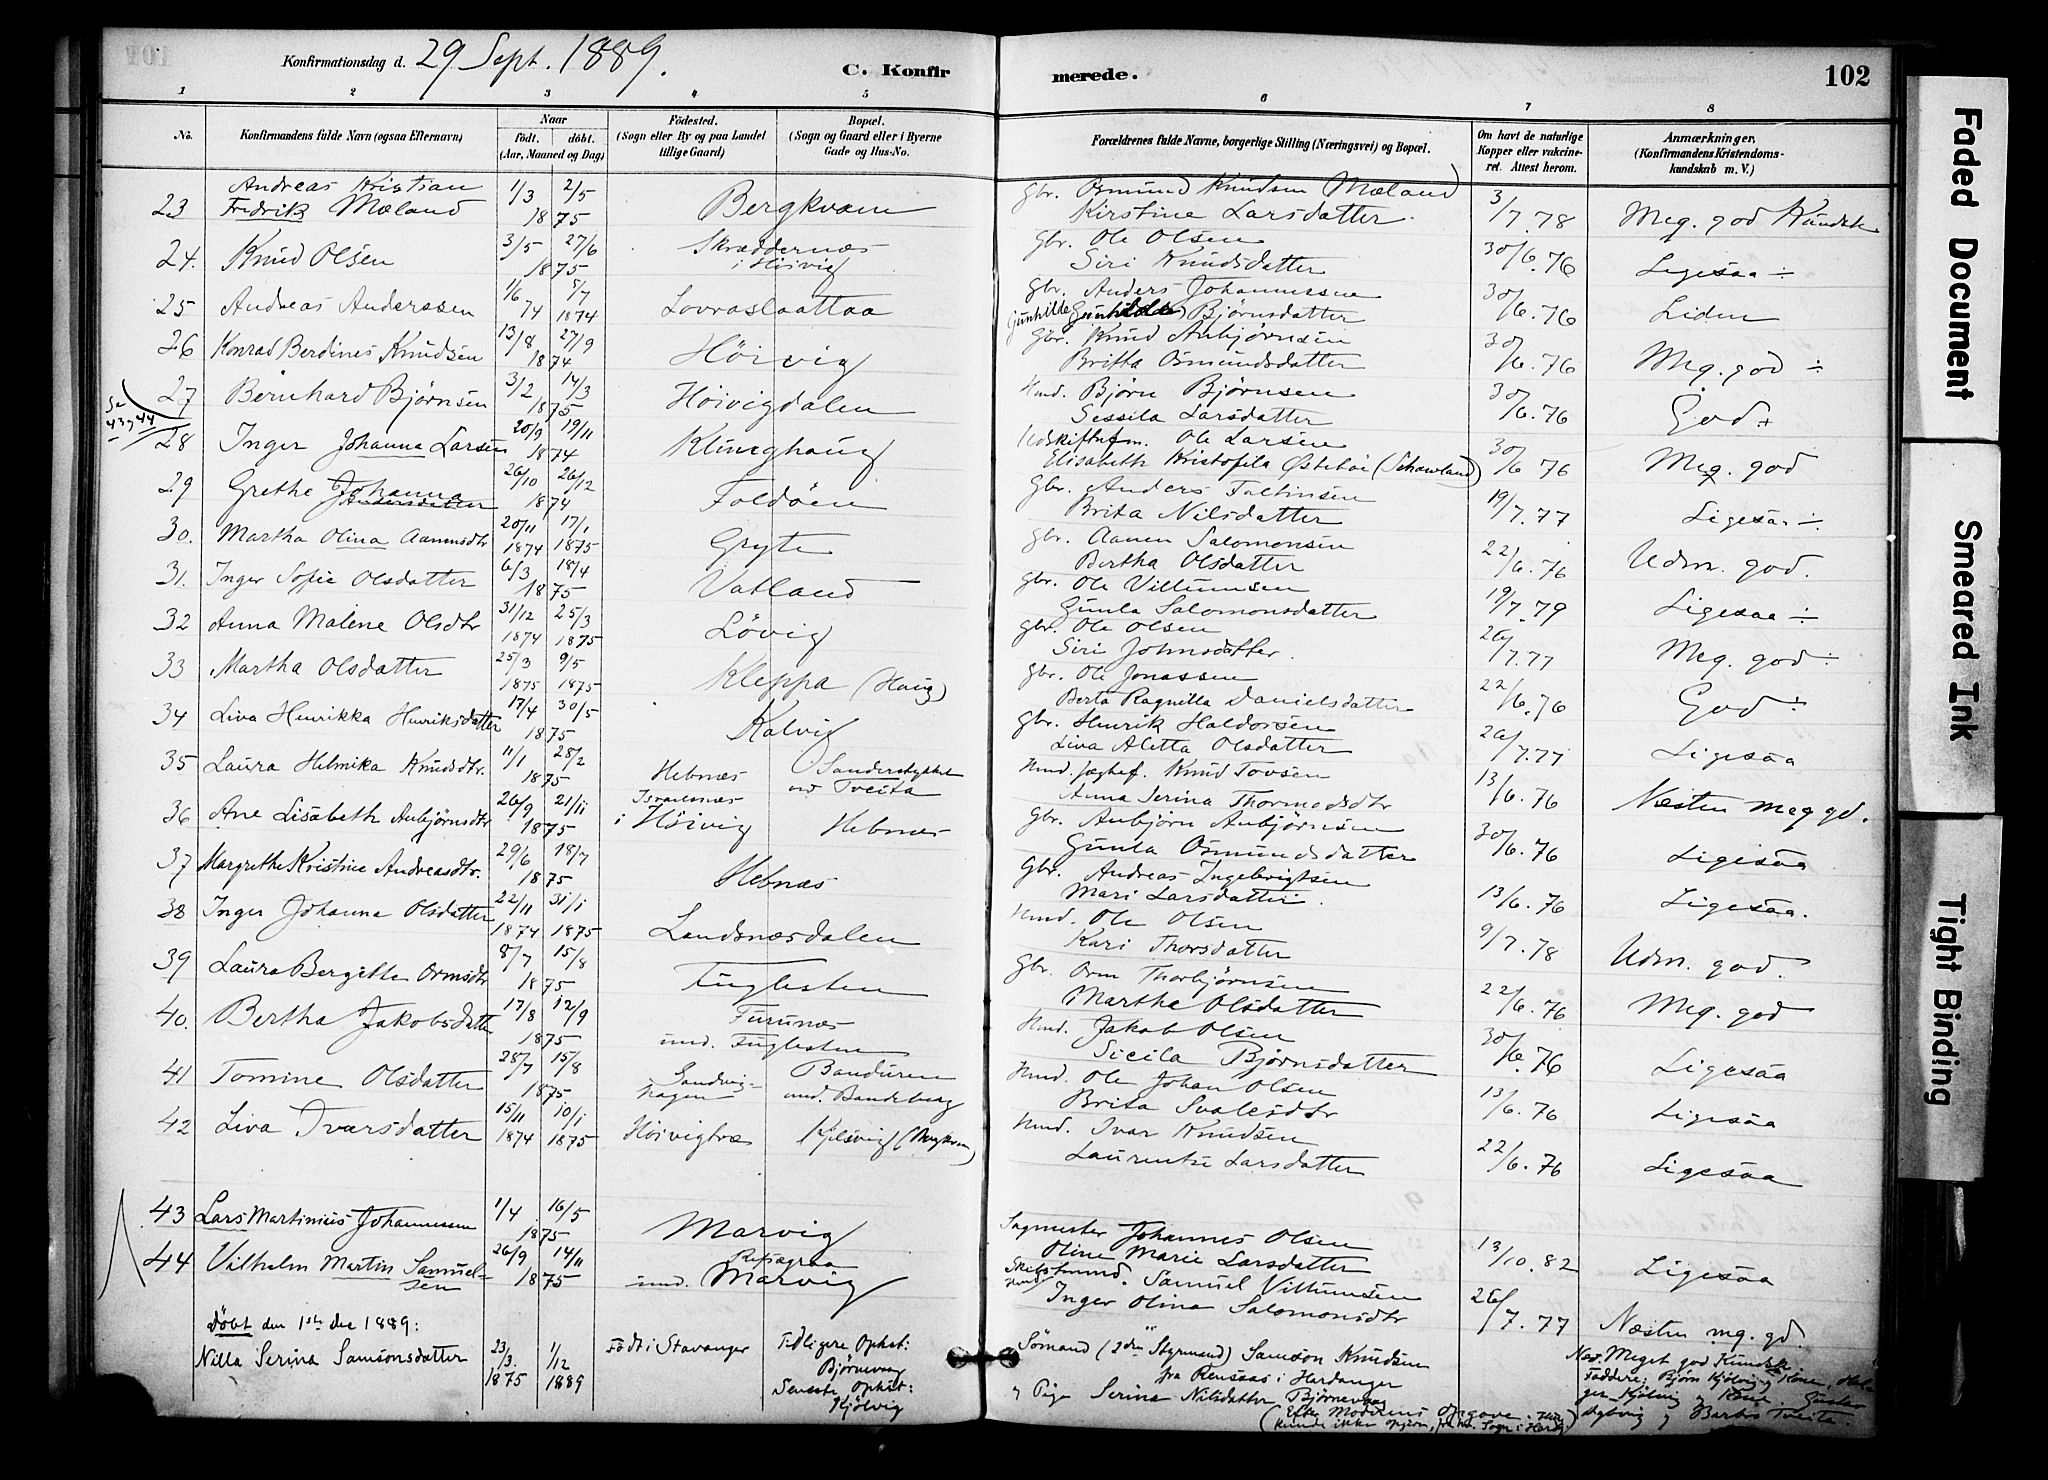 Konfirmationsdag d. 29 Sept. 1889.
C. Konfirmerede.
102
1 2 3 4 5 6 7 8
No. Konfirmandens fulde Navn (ogsaa Efternavn) Naar Födt. döbt. (Aar, Maaned og Dag) Födested. (Sogn eller By og paa Landet tillige Gaard) Bopæl. (Sogn og Gaard eller i Byerne Gade og Hus-No. Forældrenes fulde Navne, borgerlige Stilling (Næringsvei) og Bopæl. Om havt de naturlige Kopper eller vakcineret. Attest herom. Anmærkninger, (Konfirmandens Kristendomskundskab m. V.)
23 Andreas Kristian Fredrik Mæland 1/3 2/5 1875 Bergkvam Gbr. Osmund Knudsen Mæland Kirstine Larsdatter 3/7.78 Meg. god Kundsk
24. Knud Olsen 3/5 27/6 1875 Skræddernæs i Höivig Gbr. Ole Olsen Siri Knudsdatter 30/6.76 Ligesaa ÷
25 Andreas Anderssen 1/6 74 5/7 1874 Lovraslaattaa Gbr. Anders Johannessen Gunhilde Björnsdatter 30/6.76 Liden
26 Konrad Berdines Knudsen 13/8 27/9 1874 Höivig Gbr. Knud Aubjørnsen Britta Osmundsdatter 30/6.76 Meg. god ÷
27 Bernhard Bjørnsen 3/2 14/3 1875 Höivigdalen Hmd. Bjørn Bjørnsen Sessila Larsdatter 30/6.76 God +
Se 43 og 44
28 Inger Johanna Larsen 20/9 19/11 1874 Klunghaug Udskiftnfm. Ole Larsen Elisabeth Kristofila Østebøe 30/6 76 Meg. god
29 Grethe Johanna 26/10 26/12 1874 Foldöen Gbr. Anders Faltinsen Brita Nilsdatter 19/7.77 Ligesaa ÷
30. Martha Olina Aanensdtr 20/11 1874 17/1 1875 Gryte Gbr. Aanen Salomonsen Bertha Olsdatter 22/6.76 Udm. god.
31. Inger Sofie Olsdatter 6/3 18/4 1875 Vatland Gbr. Ole Villumsen Gunla Salomonsdatter 19/7.79 Ligesaa ÷
32 Anna Malene Olsdtr 31/12 1874 25/3 1875 Lövig Gbr. Ole Olsen Siri Johnsdatter. 26/7.77 Meg. god ÷
33 Martha Olsdatter 25/3 1875 9/5 1875 Kleppa (Haug) Gbr. Ole Jonassen Berta Ragnilla Danielsdatter 22/6.76 God ÷
34 Liva Henrikka Henriksdatter 17/4 30/5 1875 Kalvig Gbr. Henrik Haldorsen Liva Aletta Olsdatter 26/7.77 Ligesaa
35 Laura Helmika Knudsdtr. 11/1 28/2 1875 Hebnæs Sanderstykket Tveita Hmd. Knud Tovsen Anna Serina Thormodsdtr 13/6.76 Næsten meg gd.
36 Ane Lisabeth Aubjörnsdtr 26/9 21/11 1875 Israelsnæs i Höivig Hebnæs Gbr. Aubjørn Aubjørnsen Gunla Osmundsdatter 30/6.76 Ligesaa
37 Margrethe Kristine Andreasdtr. 29/6 18/7 1875 Hebnæs Gbr. Andreas Ingebrigtsen Mari Larsdatter 13/6.76 Ligesaa.
38 Inger Johanna Olsdatter 22/11 1874 31/1 1875 Landsnæsdalen Hmd. Ole Olsen Kari Thorsdatter 9/7.78 Udm. god.
39 Laura Bergitte Ormsdtr 8/7 15/8 1875 Fuglesten Gbr. Orm Thorbjørnsen Martha Olsdatter 22/6.76 Meg. god
40. Bertha Jakobsdatter 17/8 12/9 1875 Furunæs und. Fuglesten Hmd. Jakob Olsen Sicila Bjørnsdatter 30/6.76 Ligesaa
41 Tomine Olsdatter 28/7 15/8 1875 Sandvighagen Banduren und. Bandeberg Hmd. Ole Johan Olsen Brita Svalesdtr 13/6.76 Ligesaa
42 Liva Ivarsdatter 15/11 1874 10/1 1875 Höivigtræ Kjølsvig Hmd. Ivar Knudsen Laurentse Larsdatter 22/6.76 Ligesaa
43 Lars Martinius Johannessen 1/4 16/5 1875 Marvig Sagmester Johannes Olsen Oline Marie Larsdatter 13/10.82 Ligesaa
44 Vilhelm Martin Samuelsen 26/9 14/11 1875 Refsgraa und. Marvig Skibstmmd. Samuel Villumsen Inger Olina Salomonsdtr 26/7.77 Næsten mg. gd.
Döbt den 1ste Dec 1889:
Nilla Serina Samsonsdatter 23/3. 1875 1/12 1889 Födt i Stavanger Tidligere Ophst: Björnevaag Seneste Ophst: Kjölvig Sömand (2den Styrmand) Samson Knudsen fra Rensaas i Hardanger og Pige Serina Nilsdatter Björnevaag (Efter Moderens Opgave. kunde ikke opgives, fra hv. Sogn i Hard.)
Meget god Kundsk. Faddere: Björn Kjölvig og Kone,
Faded Document
Smeared Ink
Tight Binding